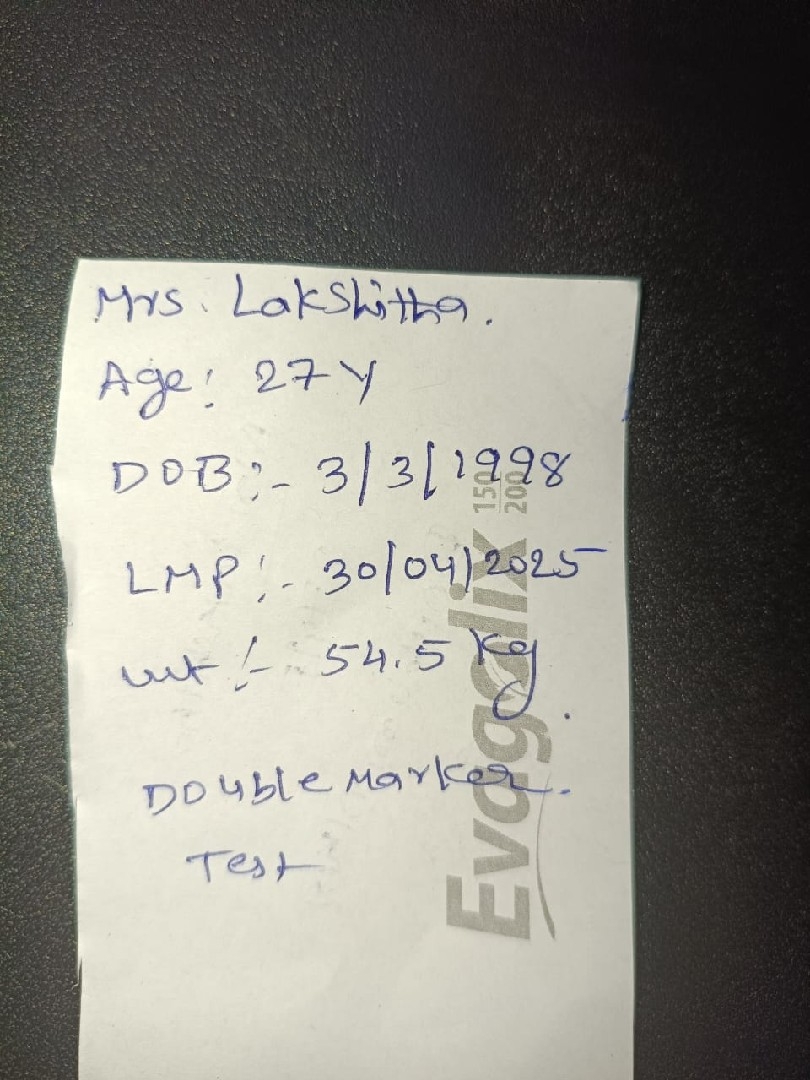 Mrs. Lakshitha.
Age: 27 Y
DOB :- 3/3/1998
LMP :- 30/04/2025
wt :- 54.5 Kg.
Double Marker.
Test
Evagalix 150 200